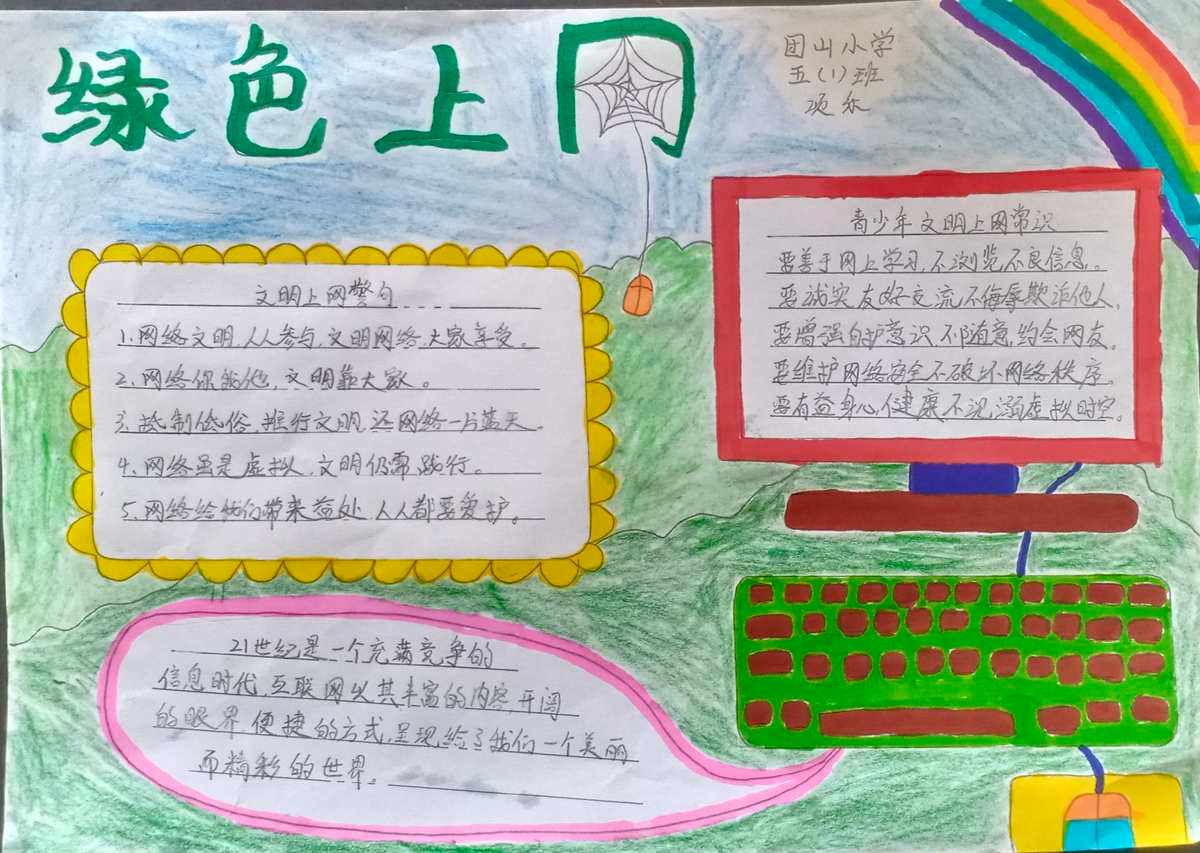 绿色上网
团山小学
五(1)班
项乐
文明上网警句
1.网络文明,人人参与,文明网络,大家享受。
2.网络你我他,文明靠大家。
3.抵制低俗,推行文明,还网络一片蓝天。
4.网络虽是虚拟,文明仍需践行。
5.网络给我们带来益处,人人都要爱护。
青少年文明上网常识
要善于网上学习,不浏览不良信息。
要诚实友好交流,不侮辱欺诈他人。
要增强自护意识,不随意约会网友。
要维护网络安全,不破坏网络秩序。
要有益身心健康,不沉溺虚拟时空。
21世纪是一个充满竞争的
信息时代,互联网以其丰富的内容,开阔
的眼界,便捷的方式,呈现给了我们一个美丽
而精彩的世界。